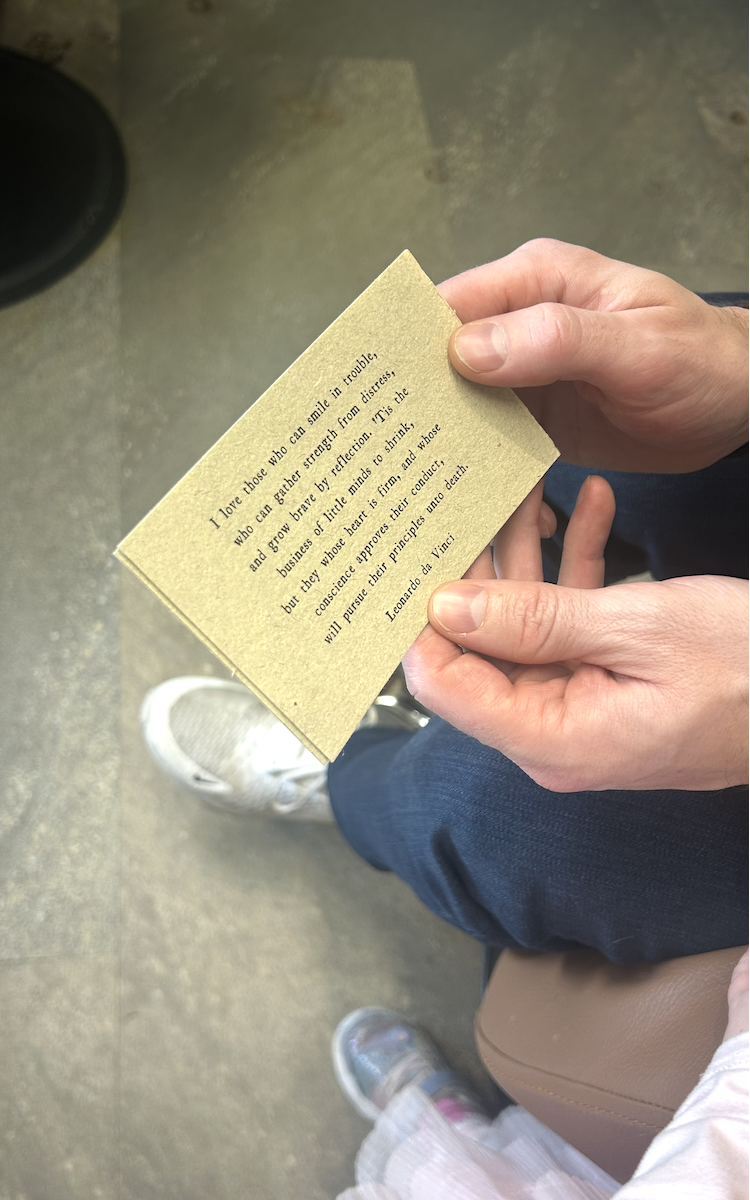 I love those who can smile in trouble,
who can gather strength from distress,
and grow brave by reflection. 'Tis the
business of little minds to shrink,
but they whose heart is firm, and whose
conscience approves their conduct,
will pursue their principles unto death.
Leonardo da Vinci